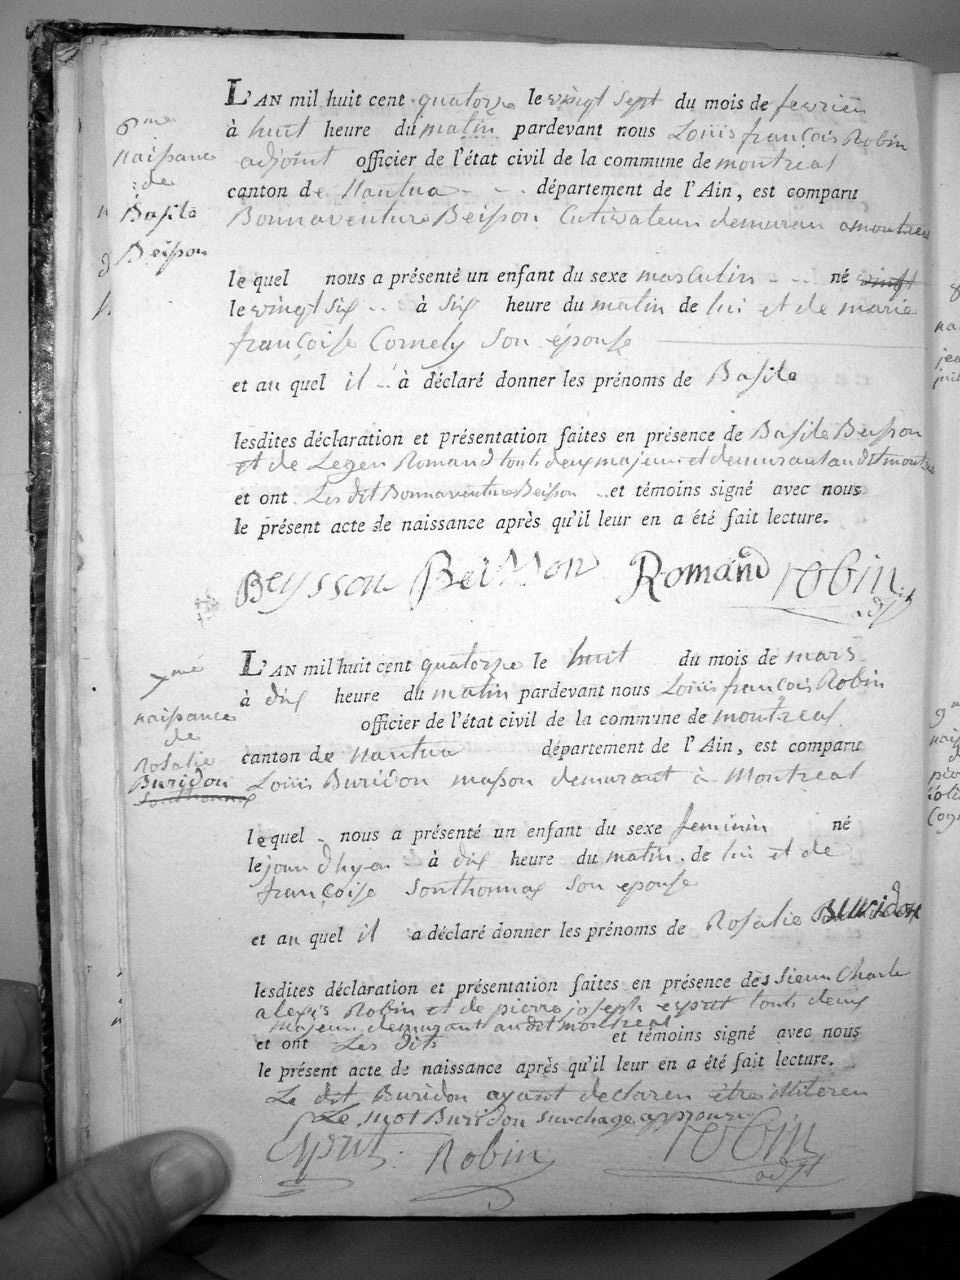 L'AN mil huit cent quatorze le vingt sept du mois de fevrier
à huit heure du matin pardevant nous Loüis françois Robin
adjoint officier de l'état civil de la commune de montreal
canton de Nantua département de l'Ain, est comparu
Bonnaventure Beisson Cutivateur demuran a montreal
6me
Naissance
de
Basile
Beisson
le quel nous a présenté un enfant du sexe masculin né vingt
le vingt six à six heure du matin de lui et de marie
françoise Cornely son épouse
et au quel il a déclaré donner les prénoms de Basile
lesdites déclaration et présentation faites en présence de Basile Beisson
et de Leger Romand touts deux majeur et demurant au dit montreal
et ont Les dit Bonnaventure Beisson et témoins signé avec nous
le présent acte de naissance après qu'il leur en a été fait lecture.
Beysson Beisson Romand robin
adjt
L'AN mil huit cent quatorze le huit du mois de mars
à dix heure du matin pardevant nous Loüis françois Robin
officier de l'état civil de la commune de montreal
canton de Nantua département de l'Ain, est comparu
Loüis Buridon masson demurant à Montreal
7me
naissance
de
Rosalie
Buridon
Sonthonnax
le quel nous a présenté un enfant du sexe feminin né
le jour d'hyer à dix heure du matin de lui et de
françoise Sonthonnax son epouse
et au quel il a déclaré donner les prénoms de Rosalie Buridon
lesdites déclaration et présentation faites en présence des sieur Charle
alexis Robin et de pierre joseph esprit touts deux
majeur demurant au dit montreal
et ont Les dits et témoins signé avec nous
le présent acte de naissance après qu'il leur en a été fait lecture.
Le dit Buridon ayant declaren être illiteren
Le mot Buridon surchage approuve
Esprit Robin robin
adjt